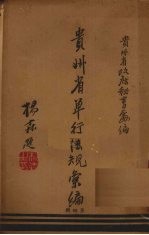 貴州省政府秘書處編
貴州省單行法規彙編
楊森題